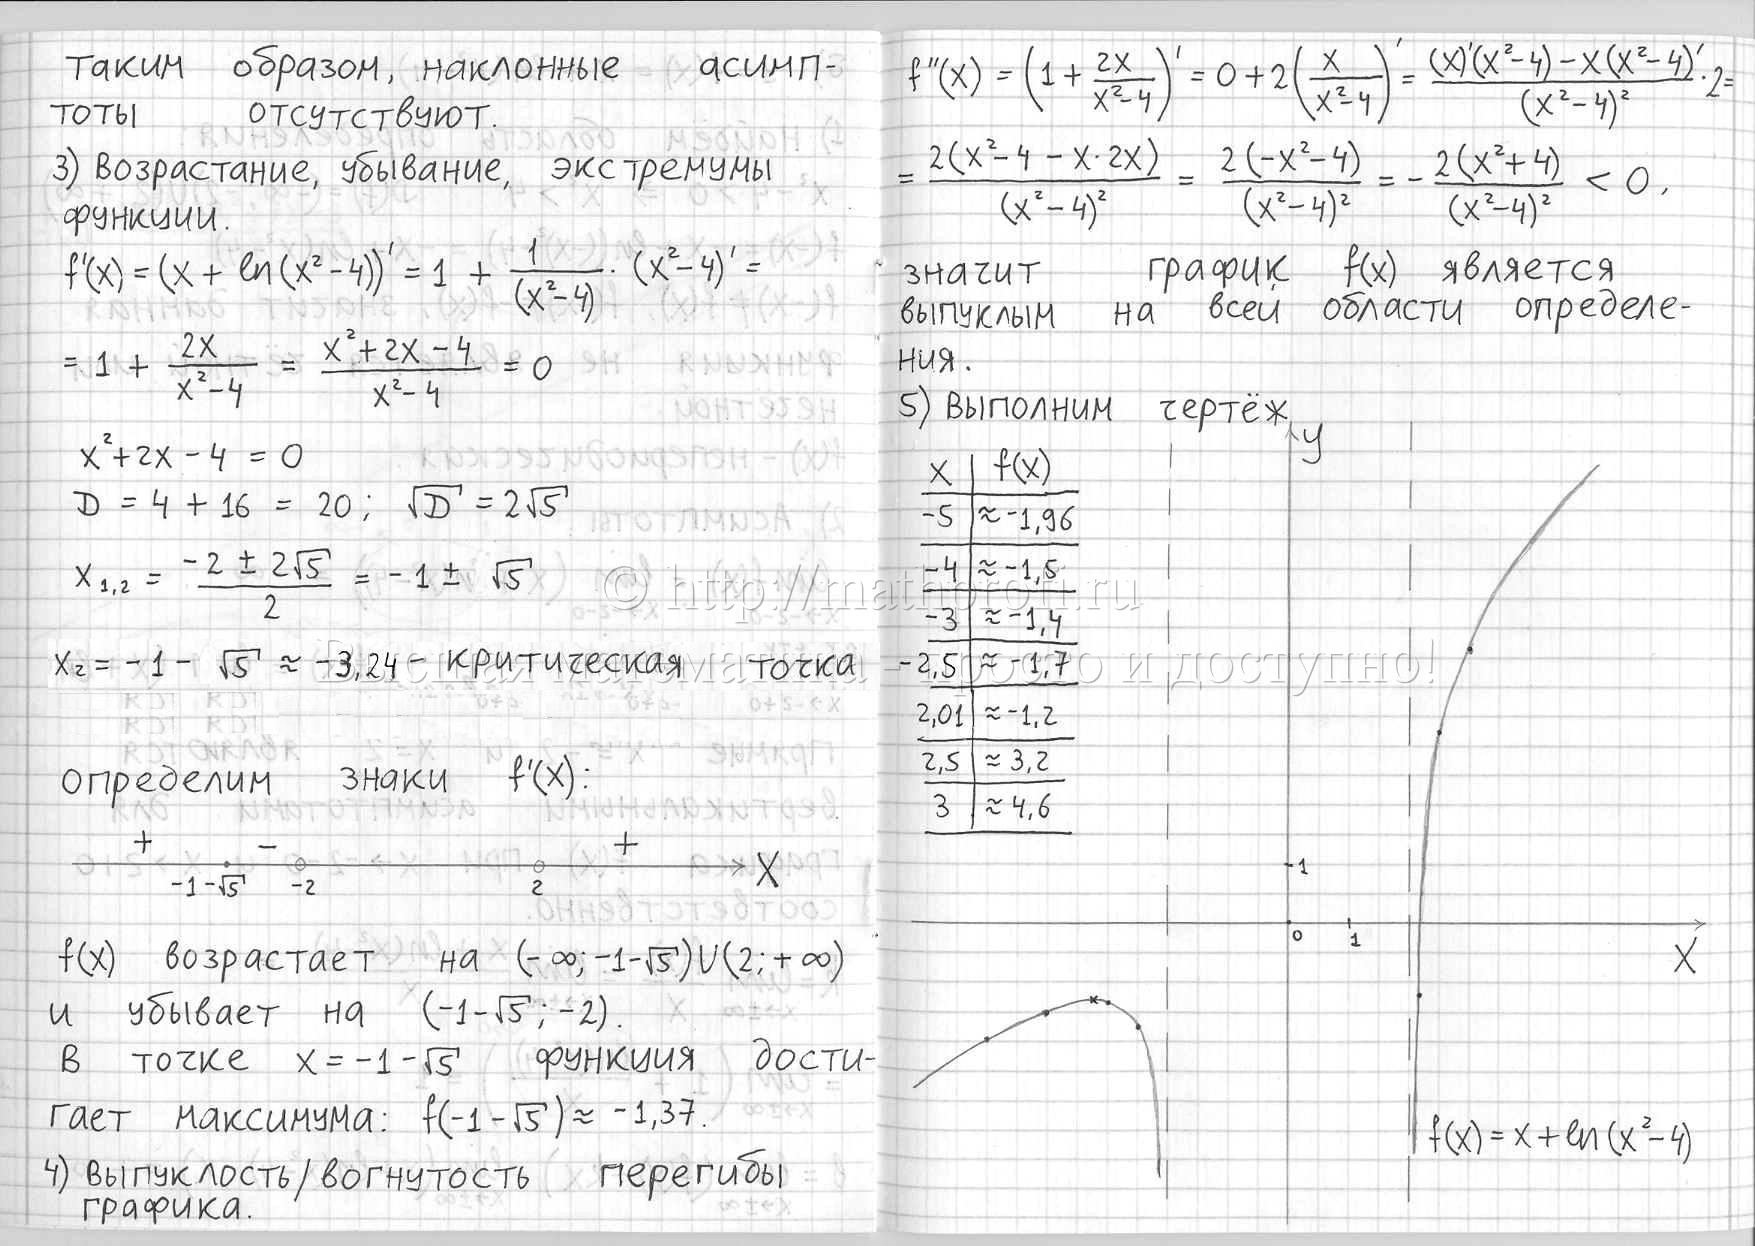 таким образом, наклонные асимп-
тоты отсутствуют.
3) Возрастание, убывание, экстремумы
функции.
f'(x) = (x + ln(x²-4))' = 1 + 1/(x²-4) · (x²-4)' =
= 1 + 2x/(x²-4) = (x²+2x-4)/(x²-4) = 0
x²+2x-4 = 0
D = 4 + 16 = 20; √D = 2√5
x₁,₂ = (-2 ± 2√5)/2 = -1 ± √5
x₂ = -1 - √5 ≈ -3,24 - критическая точка
определим знаки f'(x):
+ - +
-1-√5 -2 2 X
f(x) возрастает на (-∞; -1-√5)U(2; +∞)
и убывает на (-1-√5; -2).
В точке x = -1-√5 функция дости-
гает максимума: f(-1-√5) ≈ -1,37.
4) Выпуклость/вогнутость перегибы
графика.
f''(x) = (1 + 2x/(x²-4))' = 0 + 2(x/(x²-4))' = ((x)'(x²-4) - x(x²-4)')/(x²-4)² · 2 =
= 2(x²-4 - x·2x)/(x²-4)² = 2(-x²-4)/(x²-4)² = - 2(x²+4)/(x²-4)² < 0,
значит график f(x) является
выпуклым на всей области определе-
ния.
5) Выполним чертёж
x f(x)
-5 ≈-1,96
-4 ≈-1,5
-3 ≈-1,4
-2,5 ≈-1,7
2,01 ≈-1,2
2,5 ≈3,2
3 ≈4,6
y
1
0 1
X
f(x) = x + ln(x²-4)
© http://mathprofi.ru
Высшая математика – просто и доступно!